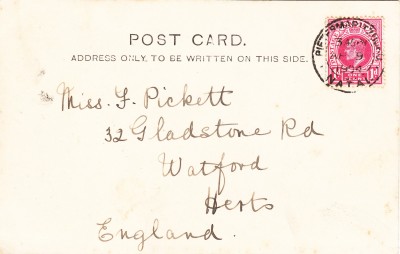 POST CARD.
ADDRESS ONLY, TO BE WRITTEN ON THIS SIDE.
PIETERMARITZBURG
NATAL
Miss. F. Pickett
32 Gladstone Rd
Watford
Herts
England.